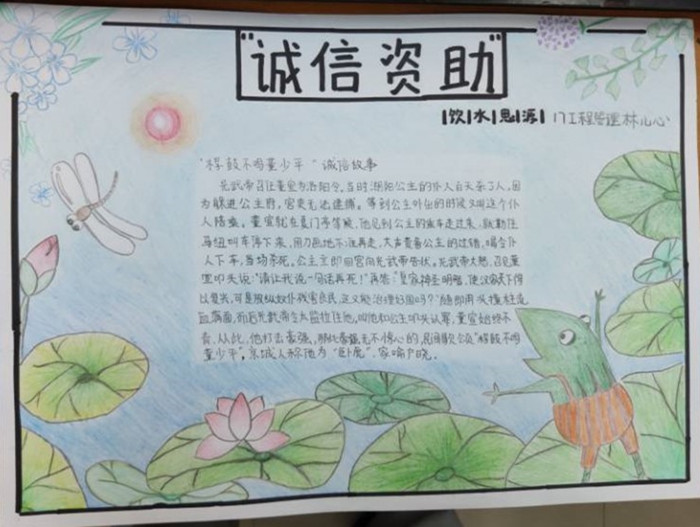 "诚信资助"
|饮|水|思|源| 17工程管理林儿心
"桴鼓不鸣董少平" 诚信故事
光武帝召任董宣为洛阳令。当时湖阳公主的仆人白天杀了人，因
为躲进公主府，官吏无法逮捕。等到公主外出的时候又叫这个仆
人陪乘。董宣就在夏门亭等候，他见到公主的乘车走过来，就勒住
马纽叫车停下来，用刀画地不准再走，大声责备公主的过错，喝令仆
人下车，当场杀死。公主立即回宫向光武帝告状。光武帝大怒，召见董
宣叩头说："请让我说一句话再死！"再答："皇家神圣明哲，使汉家天下得
以复兴，可是放纵奴仆残害良民，怎么能治理好国吗？"随即用头撞柱，
血满面，而后光武帝令太监拉住他，叫他和公主叩头认罪，董宣始终不
肯。从此，他打击豪强，无不惊心的，民间歌公颂"桴鼓不鸣
董少平"。京城人称他为"卧虎"。家喻户晓。